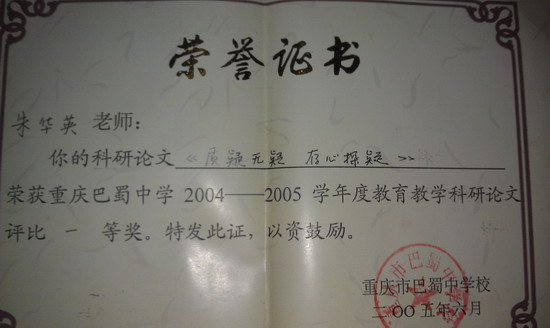 荣誉证书
朱华英 老师：
你的科研论文《质疑无疑 存心探疑》
荣获重庆巴蜀中学 2004——2005 学年度教育教学科研论文
评比 一 等奖。特发此证，以资鼓励。
重庆市巴蜀中学校
二OO五年六月